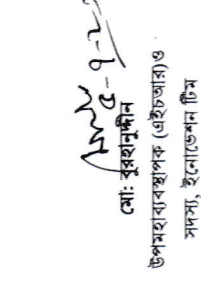 ৫-৭-২
মো: বুরহানুদ্দীন
উপমহাব্যবস্থাপক (এইচআর) ও
সদস্য, ইনোভেশন টিম